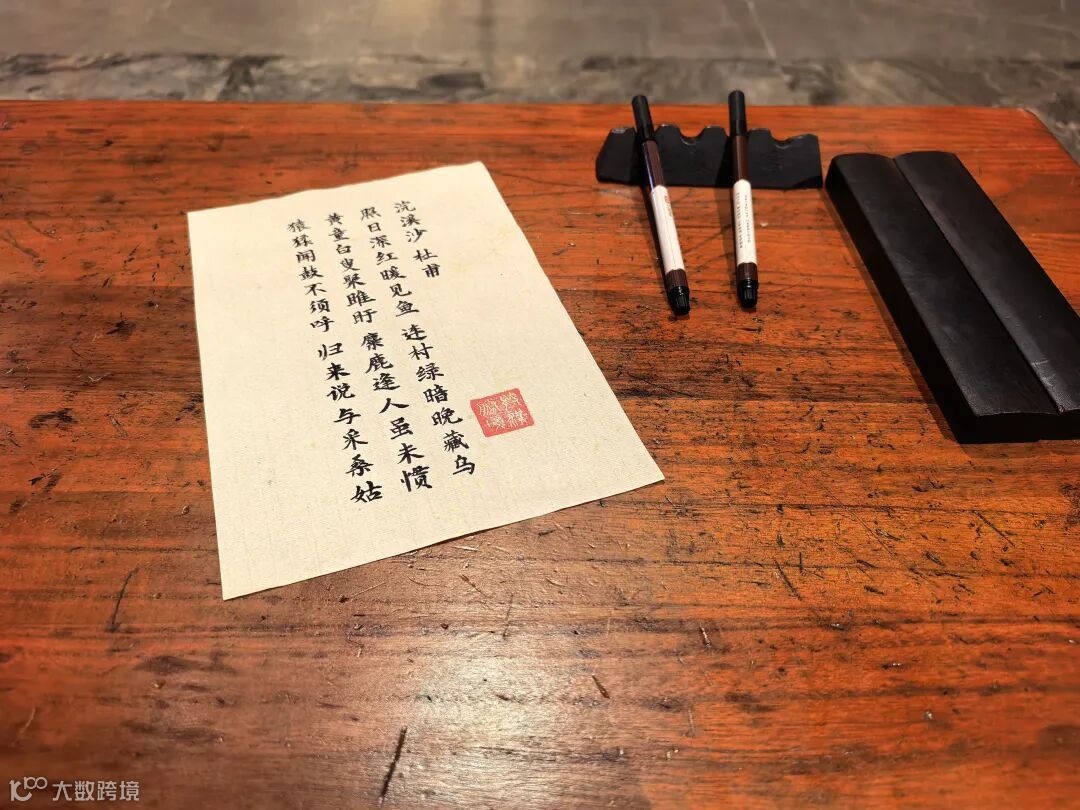 浣溪沙 杜甫
照日深红暖见鱼 连村绿暗晚藏乌
黄童白叟聚睢盱 麋鹿逢人虽未惯
猿猱闻鼓不须呼 归来说与采桑姑
大数跨境